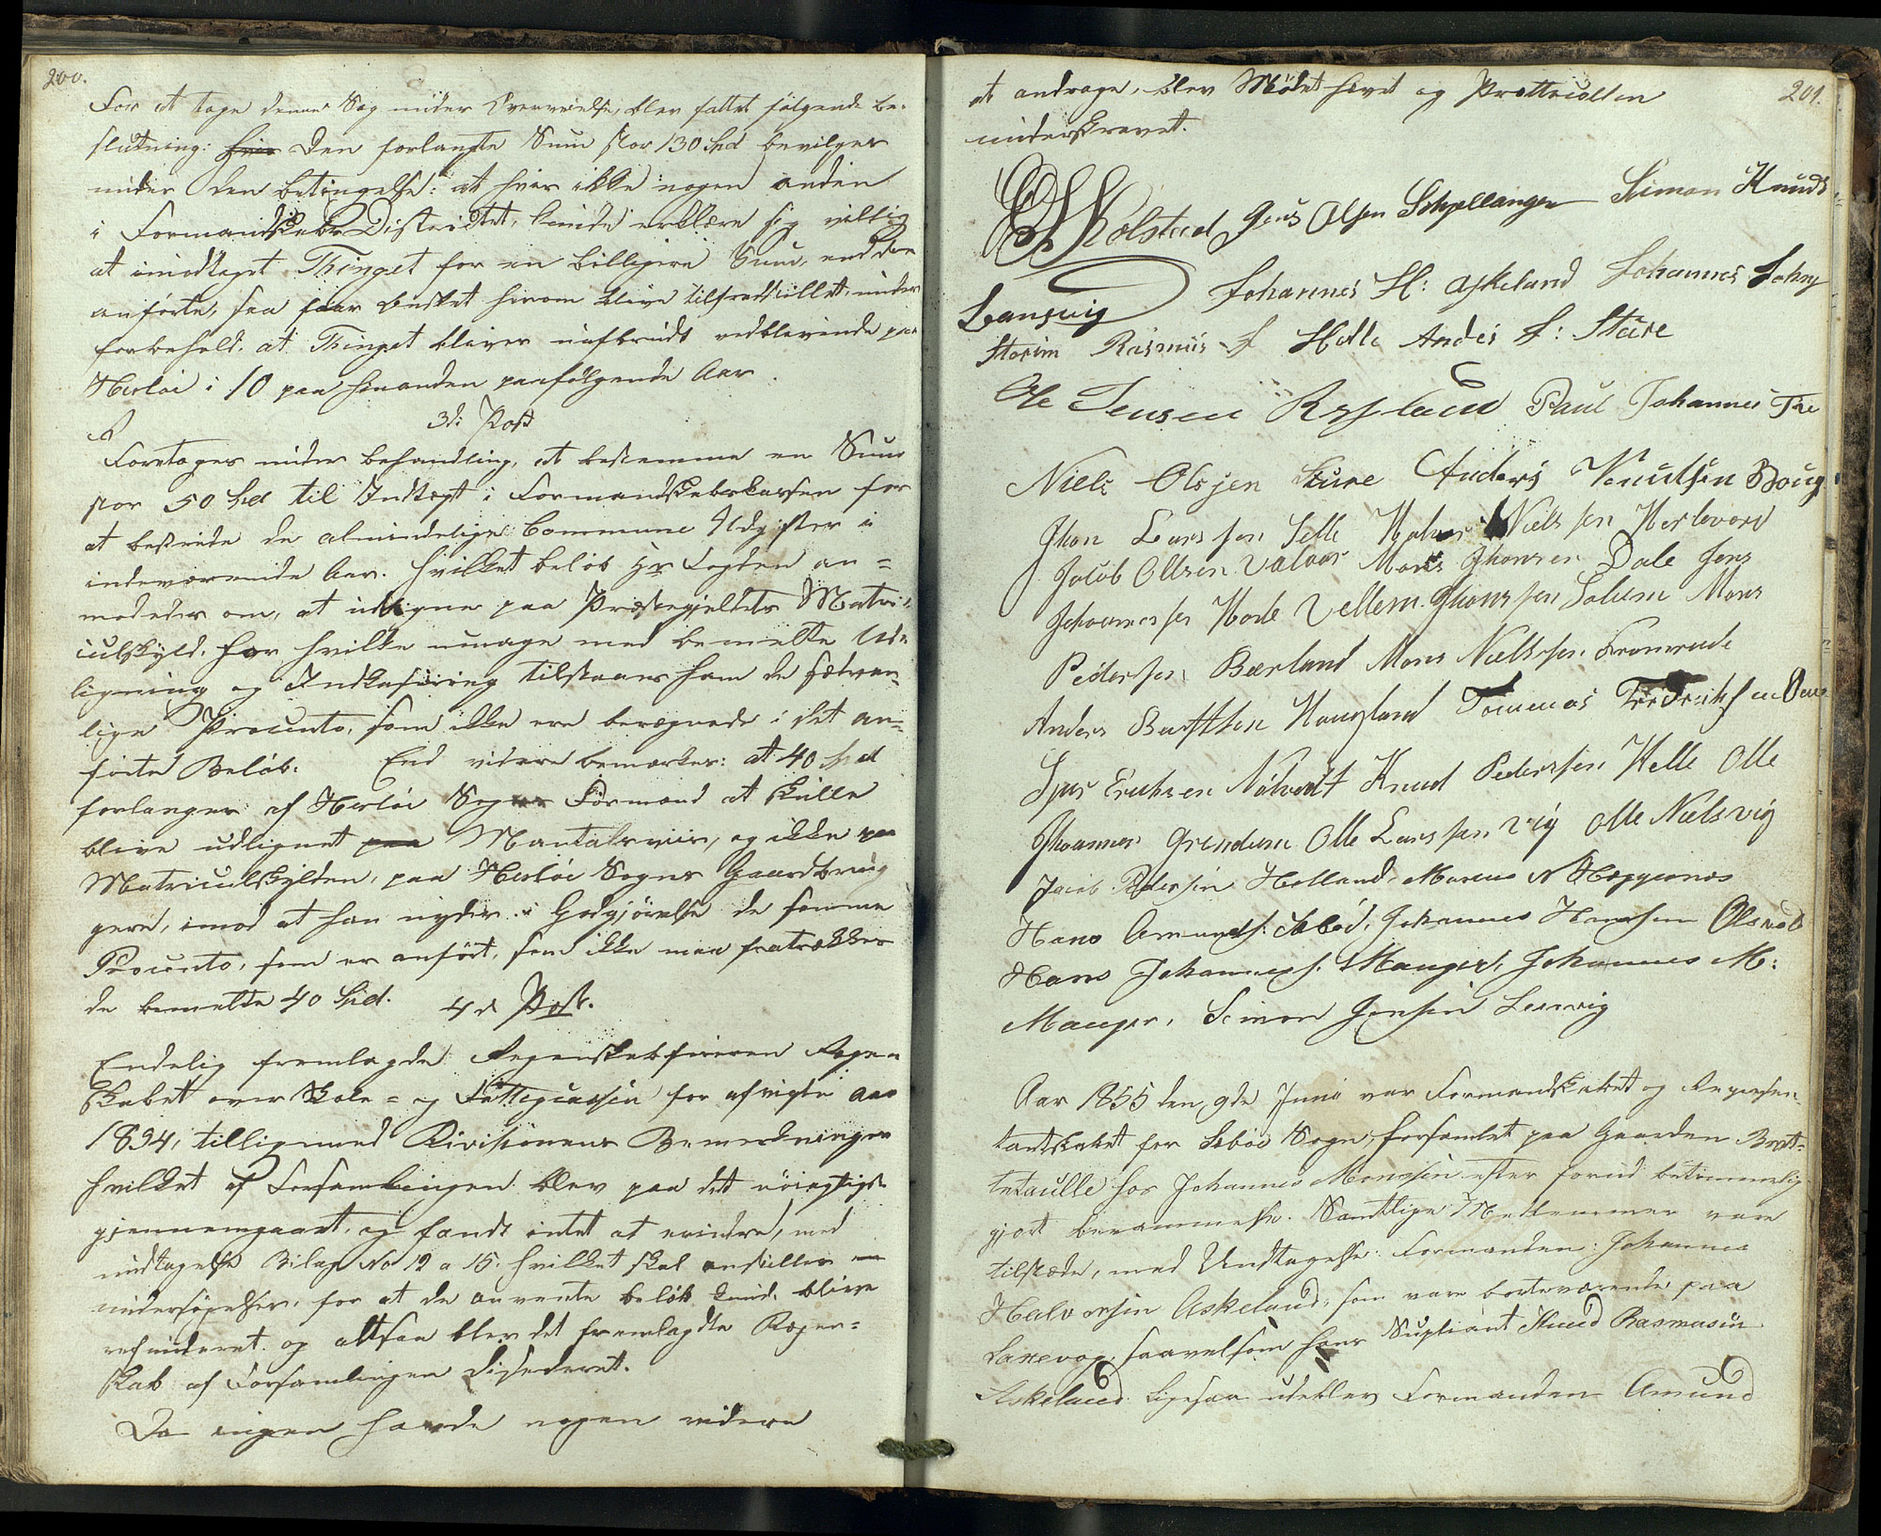 200.
For at tage denne Sag under Overveielse, blev fattet følgende be-
slutning: hvis Den forlangte Sum stor 130 Spd bevilges
under den betingelse: at hvis ikke nogen anden
i Formandskabs Districtet, kunde erklære sig villig
at imodtaget Thinget for en billigere Sum, end den
anførte, saa faar Ønsket herom blive tilfredstillet, under
forbehold, at Thinget bliver uafbrudt vedblivende paa
Herløe i 10 paa hinanden paafølgende Aar.
3de Post
Foretages under behandling, at bestemme en Sum
stor 50 Spd til Indtægt i Formandskabskassen for
at bestride de almindelige Commune Udgifter i
indeværende Aar. Hvilket beløb Hr Fogden an=
modedes om, at udligne paa Præstegjeldets Matri-
culskyld, for hvilke umage med bemelte Ud-
ligning og Indkassering tilstaaes ham de sædvan-
lige Procento, som ikke ere beregnede i det an=
førte Beløb. End videre bemærkes: at 40 Spd
forlanges af Herløe Sogns Formænd at skulle
blive udlignet paa Mantalsviis, og ikke paa
Matriculskylden, paa Herløe Sogns Gaardbrug
gere, imod at han nyder i Godgjørelse de samme
Procento, som er anført, som ikke maa fratrækkes
de bemelte 40 Spd.
4de Post.
Endelig fremlagde Regenskabsføreren Regen-
skabet over Skole = og Fattigcassen for afvigte Aar
1854, tilligemed Revisionens Bemerkninger
hvilket af Forsamlingen blev paa det nöiagtigste
gjennemgaaet, og fandt intet at erindre, med
undtagelse Bilag No 12 a 15. hvilket skal anstilles
undersøgelser, for at de anvente beløb kunde blive
refunderet. og altsaa blev det fremlagte Regen=
skab af Forsamlingen Desideret.
Da ingen havde nogen videre
201.
at andrage, blev Mødet hævet og Prottocollen
underskrevet.
Kolstad Jens Olsen Schjellanger Simon Knuds
Landsvig Johannes H: Askeland Johannes Johns
Storem Rasmus J Helle Andes J: Sture
Ole Jensen Rossland Paul Johannes
Niels Olsjen Sture Anders Knutsen Boug
Jhon Larssen Selle Halvor Nielssen Herlevær
Jacob Ollsen Valaar Mons Jhonsen Dale Jens
Johannessen Hovle Vellem Jhonssen Solem Mons
Pedersen Bærland Mons Nielssen Fromrede
Anders Haugland Tommas Fredriksen
Eriksen Nolvedt Knud Pederssen Helle Olle
Jhoannes Grendum Olle Larssen Vig Olle Nielsvig
Jacob Pedersen Holland, Marcus N Hopgeenæs
Hans Amunds. Sebøe, Johannes Hanssen Olsvol
Hans Johanness. Manger, Johannes M:
Manger, Simon Jensen Leirvig
Aar 1855 den 9de Juni var Formandskabet og Represen-
tantskabet for Sebøe Sogn, forsamlet paa Gaarden Brat=
tetaulle hos Johannes Monssen efter forud betimmelig
gjort berammelse. Samtlige Medlemmer vare
tilstæde, med Undtagelse: Formanden: Johannes
Halvorsen Askeland, som vare bortværende paa
Lanevog, saavelsom hans Supliant Knud Rasmusen
Askeland ligesaa udeblev Formanden Amund